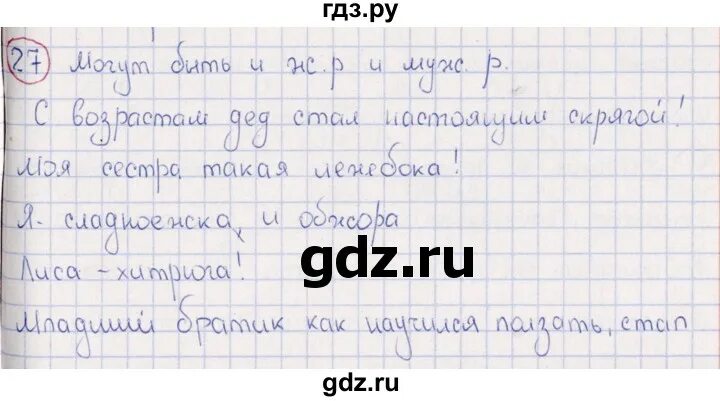 гдз.ру
27 Могут быть и жс.р и муж. р.
С возрастам дед стал настоящим скрягой!
Моя сестра такая лежебока!
Я - сладкоежска и обжора
gdz.ru
Лиса - хитрюга!
Младший братик как научился ползать, стал
gdz.ru